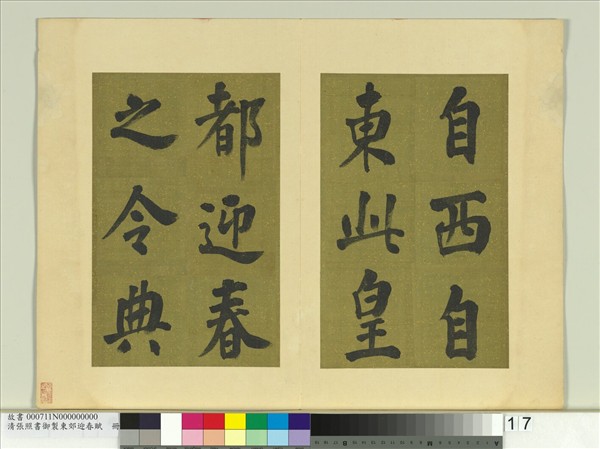 自西自
東此皇
都迎春
之令典
故書 000711N000000000
清張照書御製東郊迎春賦 冊
17